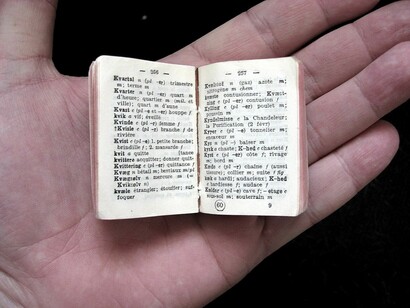 — 256 —
Kvartal n (pl -er) trimestre
m; terme m
Kvarter n (pl -er) quart m
d'heure; quartier m (mil. et
ville); quart m d'aune
Kvast c (pl -e el -er) houppe f
kvik a vif; éveillé
Kvinde c (pl -r) femme f
Kvisle c (pl -r) branche f de
rivière
Kvist c (pl -e) 1. petite branche;
brindille f; 2. mansarde f
kvit a quitte
kvittere acquitter; donner quit-
Kvittering c (pl -er) quittance f
Kvæg n bétail m; bestiaux m/pl
Kvægsølv n mercure m (=
Kviksølv n)
kvæle étrangler; étouffer; suf-
foquer
— 257 —
Kvælstof n (gaz) azote m;
nitrogène m chem
kvæste contusionner; Kvæst-
ning c (pl -er) contusion f
Kylling c (pl -er) poulet m;
poussin m
Kyndelmisse c la Chandeleur;
la Purification (2 févr)
Kyper c (pl -e) tonnelier m;
Kys n (pl -) baiser m
kysk a chaste; K-hed c chasteté f
Kyst c (pl -er) côte f; rivage
m; bord m
Kæde c (pl -r) chaîne f (aussi
collier m; suite f
kæk a hardi; audacieux; K-hed
c hardiesse f; audace f
Kælder c (pl -e) cave f; -etage c
sous-sol m; souterrain m
60 9